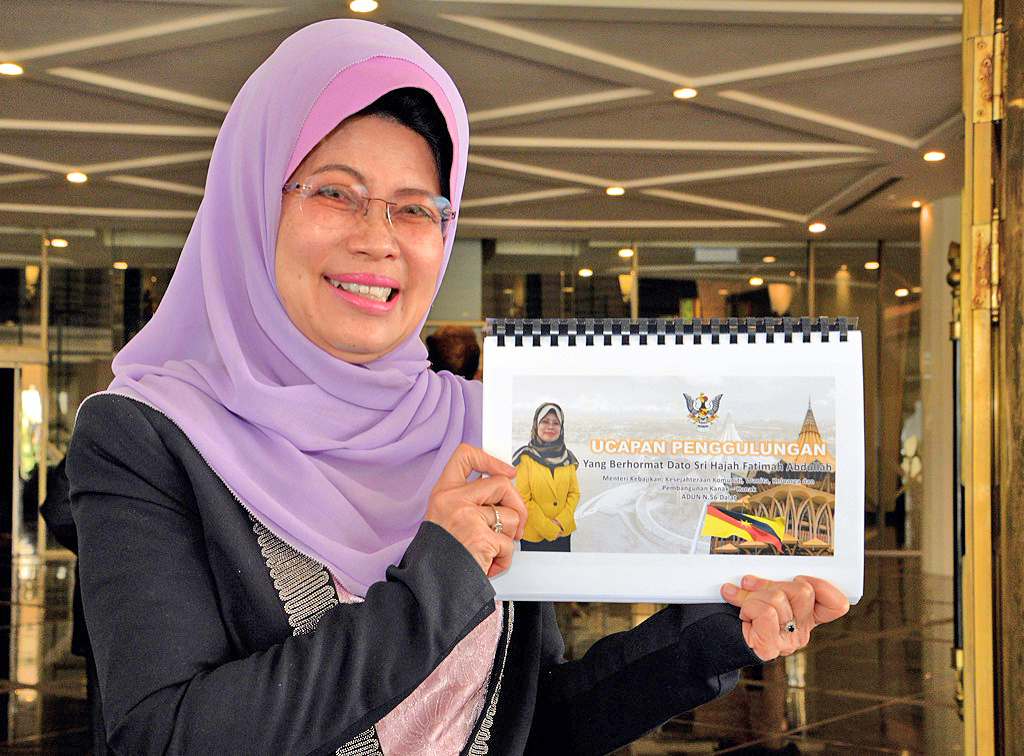 UCAPAN PENGGULUNGAN
Yang Berhormat Dato Sri Hajah Fatimah Abdullah
Menteri Kebajikan, Kesejahteraan Komuniti, Wanita, Keluarga dan
Pembangunan Kanak - Kanak
ADUN N.56 Dalat